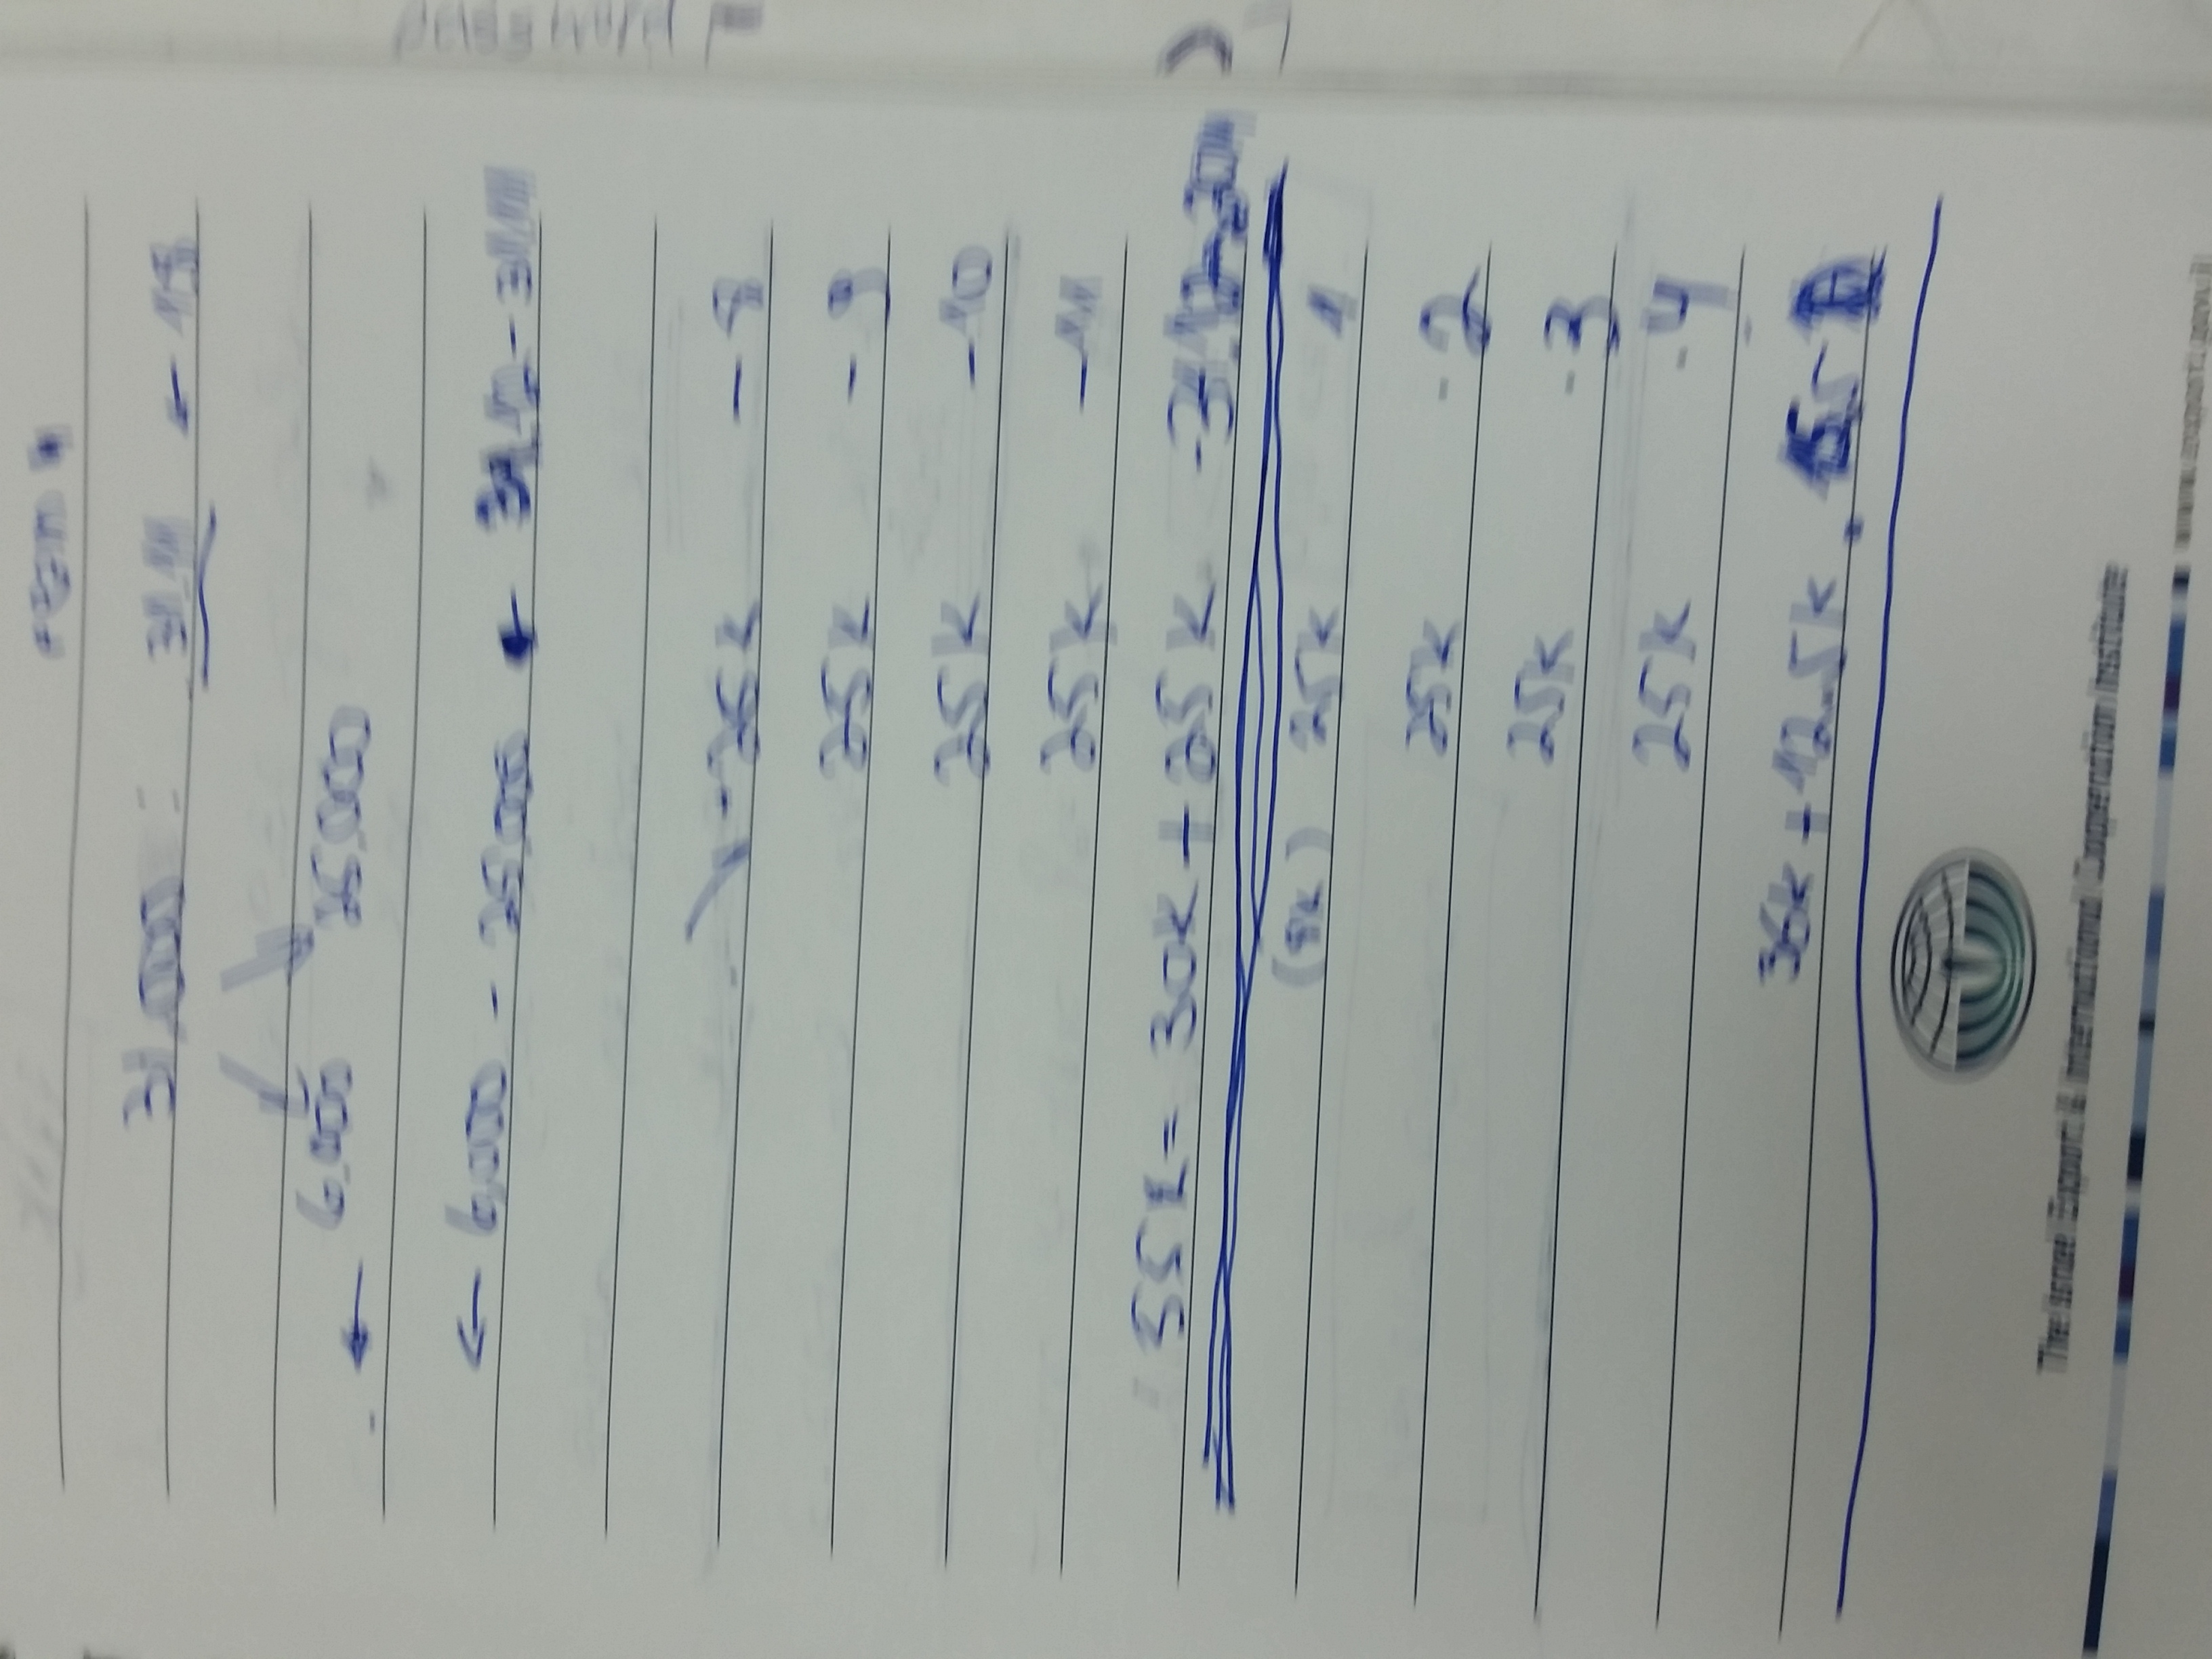 31,000 : 31.11 ← 1.9
6,000 25,000
← 6,000 - 25,000 ← 31.12 - 31.11
- 25k - 8
25k - 9
25k - 10
25k - 11
55k = 30k + 25k - 31.12
(8k) 25k 1
25k - 2
25k - 3
25k - 4
36k + 12.5k
The Israel Export & International Cooperation Institute
www.export.gov.il